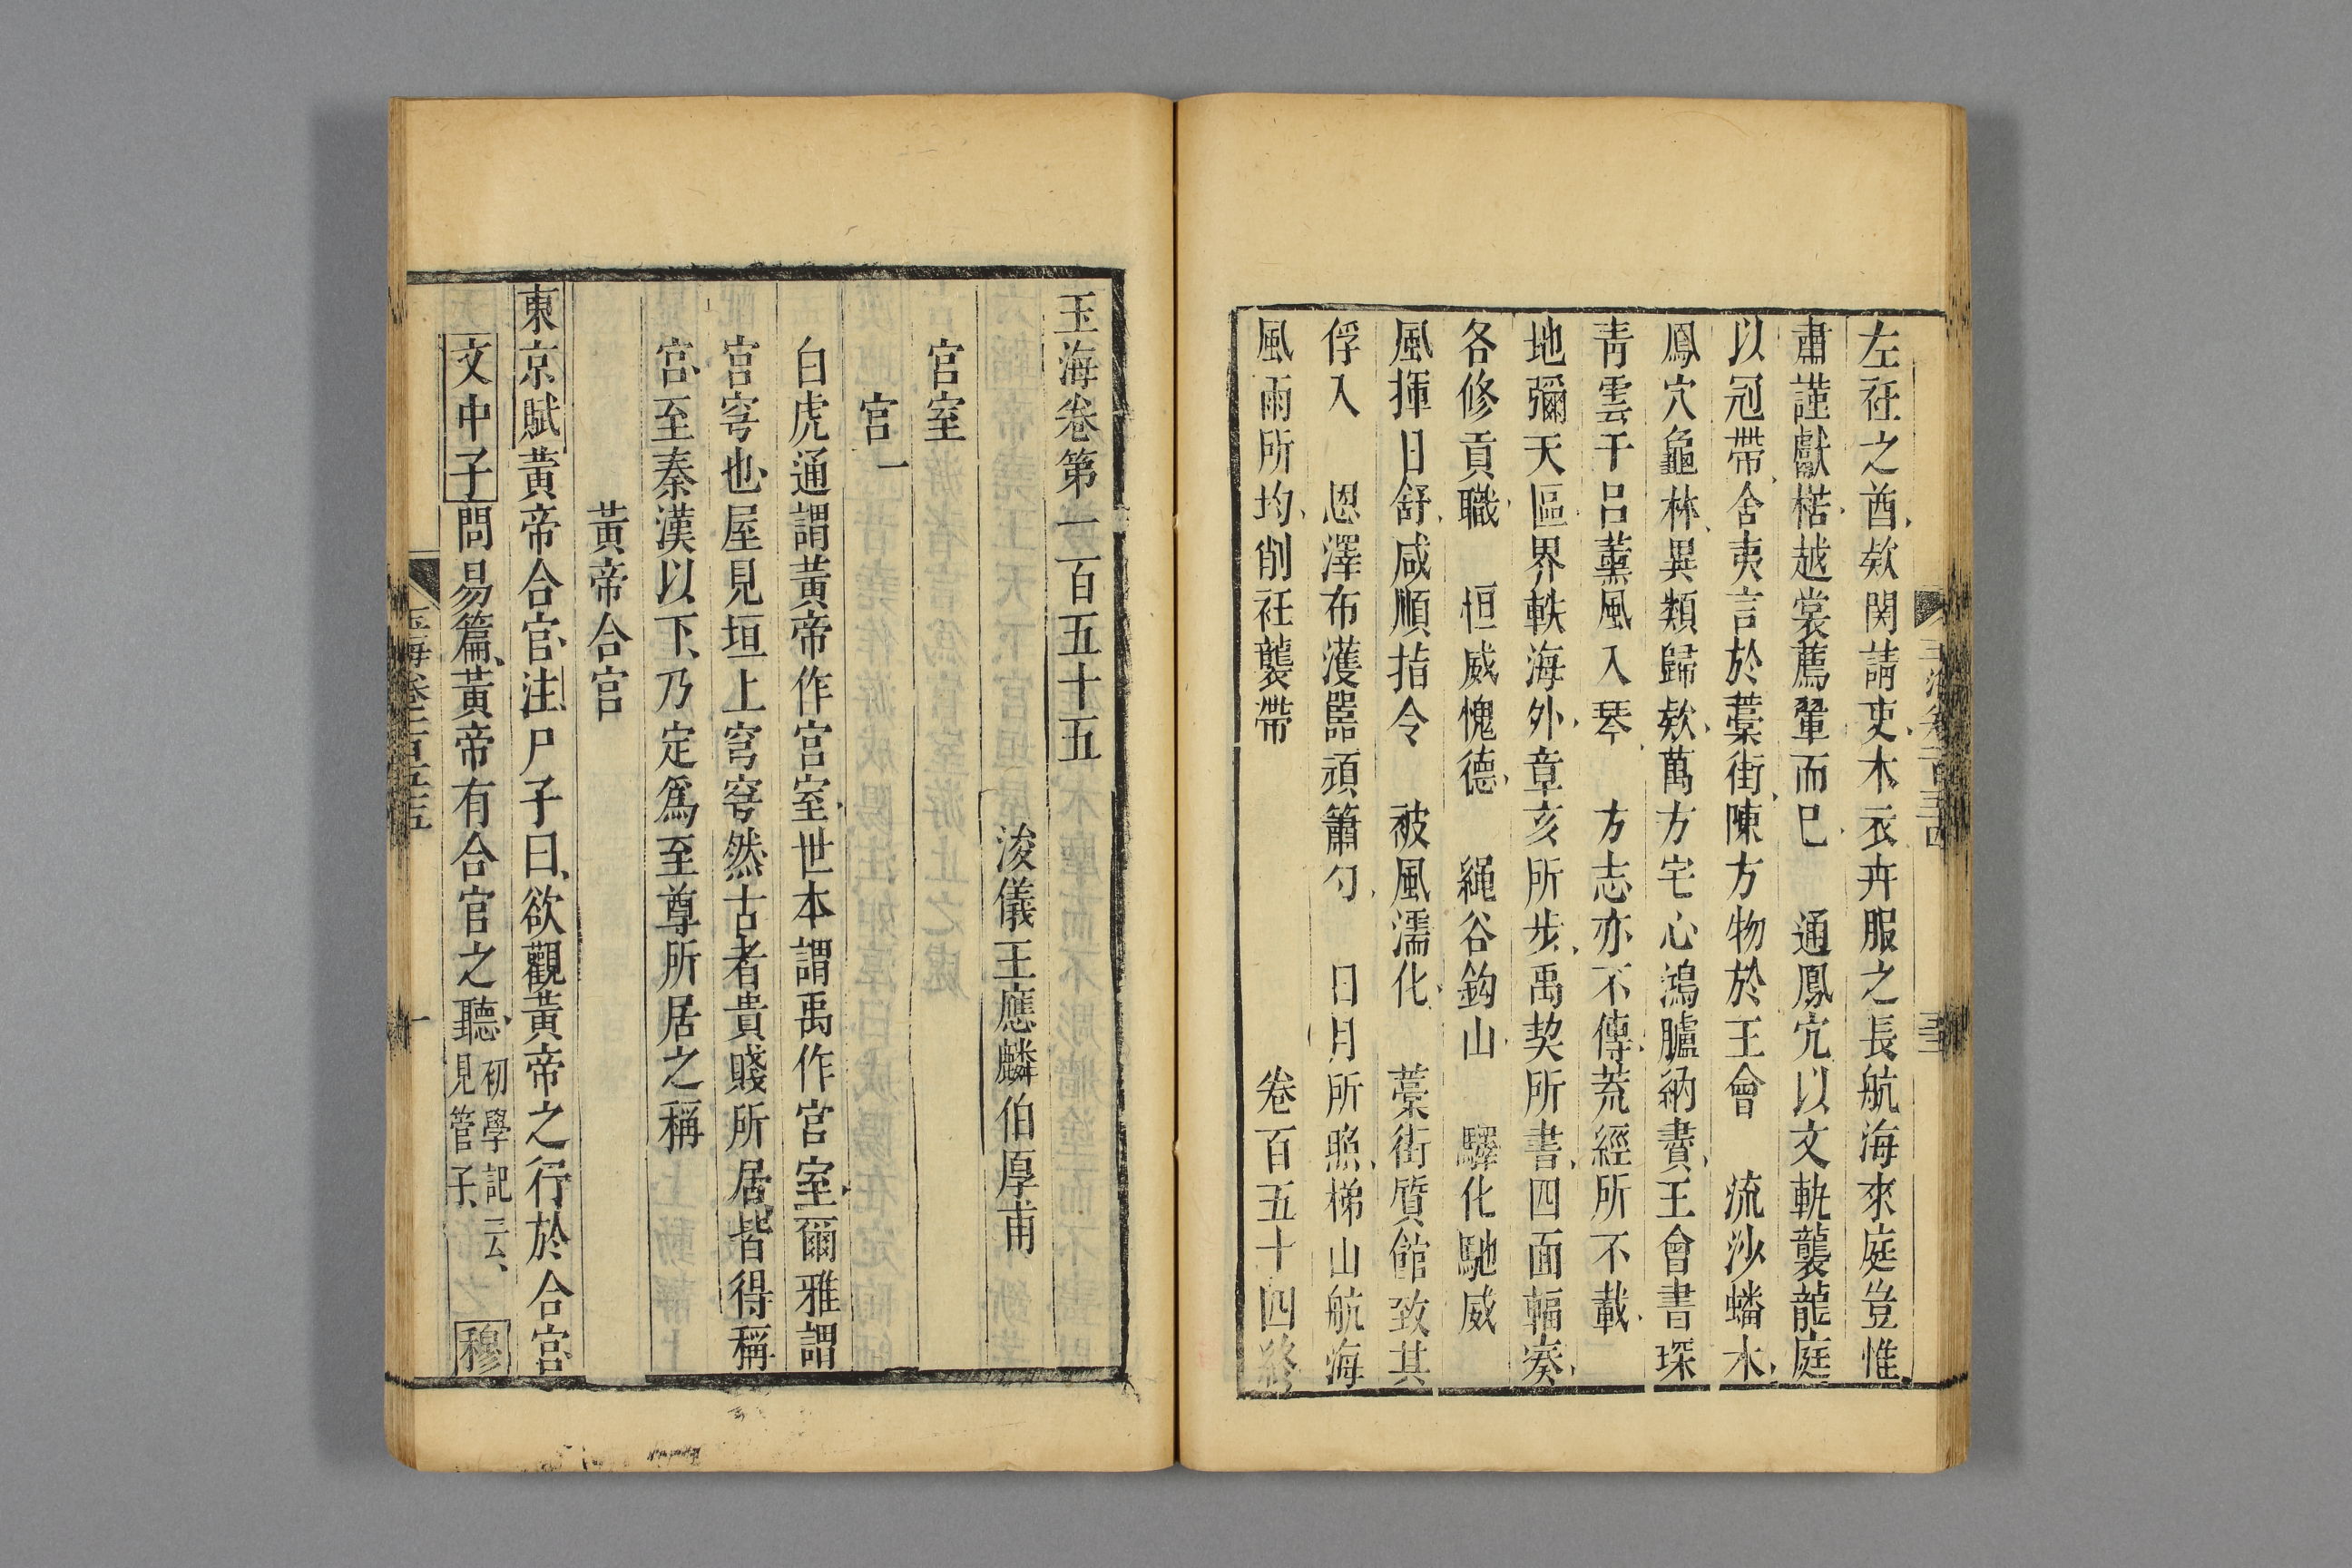 左衽之酋欸関請吏木衣卉服之長航海來庭豈惟
肅謹獻楛越裳薦翬而已　通鳳宂以文軌襲龍庭
以冠帶舍夷言於藁街陳方物於王會　流沙蟠木
鳳穴龜林異類歸欸萬方宅心鴻臚納賮王會書琛
青雲干呂薰風入琴　方志亦不傳荒經所不載
地彌天區界軼海外章亥所步禹契所書四面輻凑
各修貢職　恒威愧德　繩谷鈎山　驛化馳威
風揮日舒咸順指令　被風濡化　藁街質館致其
俘入　恩澤布濩嚚頑簫勺　日月所照梯山航海
風雨所均削衽襲帶　卷百五十四終
玉海卷第一百五十五
浚儀王應麟伯厚甫
宮室
宮一
白虎通謂黃帝作宮室世本謂禹作宮室爾雅謂
宮穹也屋見垣上穹穹然古者貴賤所居皆得稱
宮至秦漢以下乃定爲至尊所居之稱
黃帝合宮
東京賦黃帝合宮注尸子曰欲觀黃帝之行於合宮
文中子問易篇黃帝有合宮之聽初學記云見管子
穆
玉海卷一百五十五
一